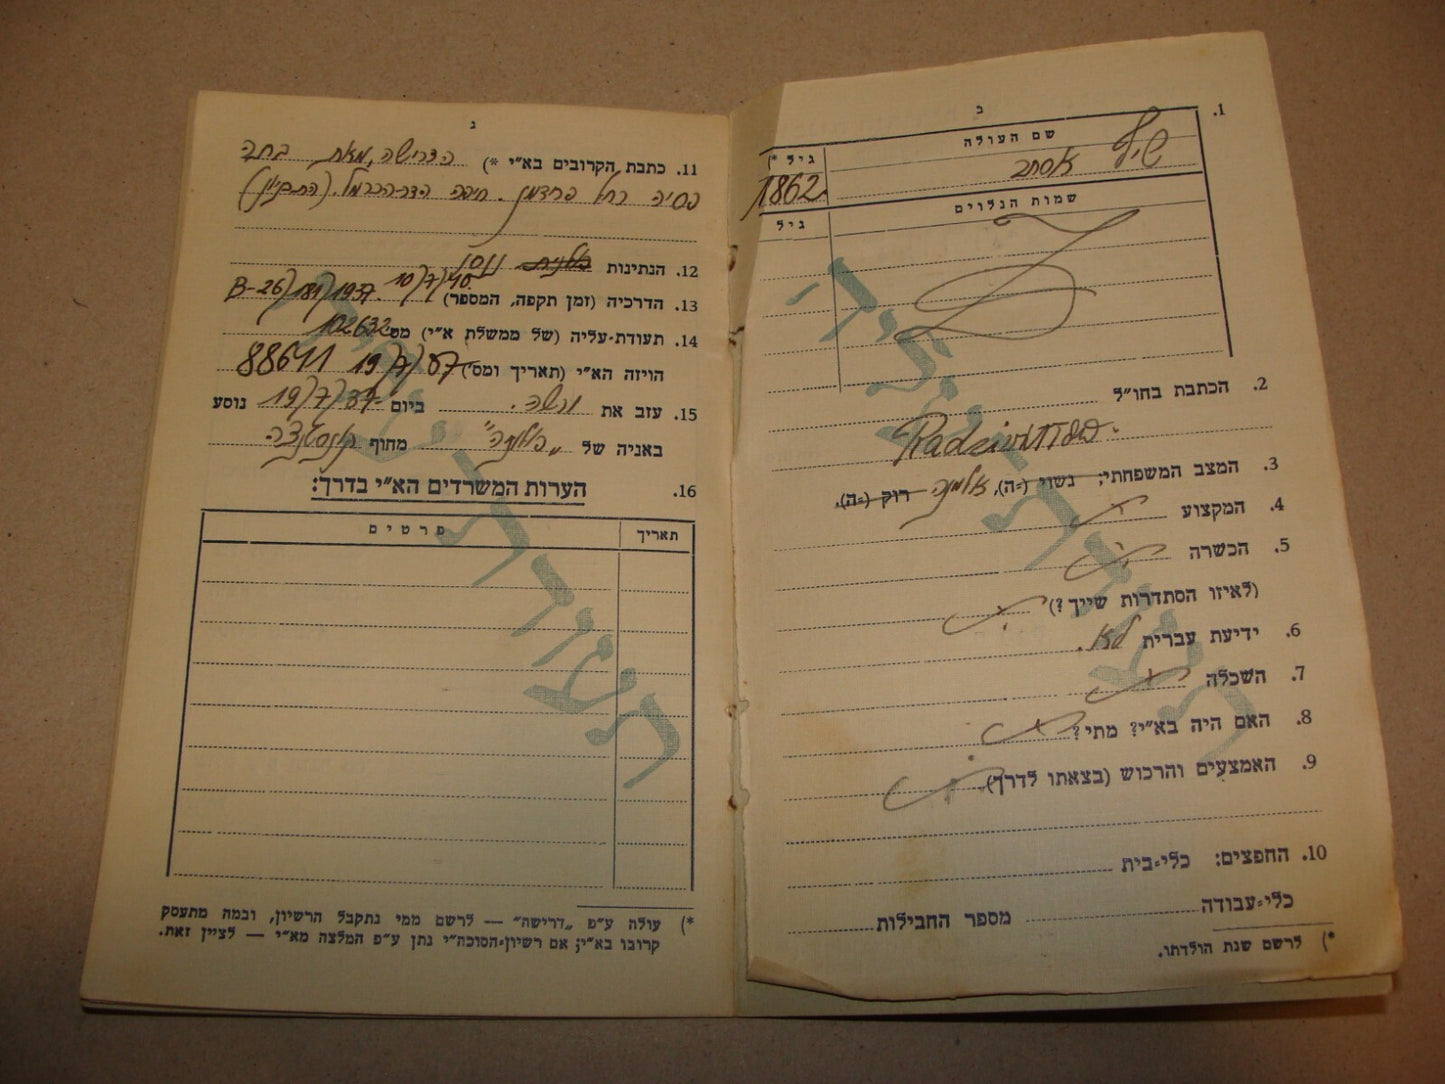 ב
1.
שם העולה
גיל *)
שיף אסתר
1862
שמות הנלוים
גיל
2. הכתבת בחו״ל
3. המצב המשפחתי: נשוי (־ה), אלמנה רוק (־ה).
4. המקצוע
5. הכשרה
(לאיזו הסתדרות שייך?)
6. ידיעת עברית לא.
7. השכלה
8. האם היה בא״י? מתי?
9. האמצעים והרכוש (בצאתו לדרך)
10. החפצים: כלי־בית
כלי־עבודה
מספר החבילות
*) לרשם שנת הולדתו.
ג
11. כתבת הקרובים בא״י *) הדרישה, מאת בתה
פסיה רחל פרידמן. חיפה הדר־הכרמל.
12. הנתינות
13. הדרכיה (זמן תקפה, המספר) 10/7/40. B-26/181/1937
14. תעודת־עליה (של ממשלת א״י) מס׳ 102632
הויזה הא״י (תאריך ומס׳) 19/7/37 88611
15. עזב את ורשה. ביום 19/7/37 נוסע
באניה של „פולניה״ מחוף קונסטנצה
16. הערות המשרדים הא״י בדרך:
תאריך
פרטים
*) עולה ע״פ „דרישה״ — לרשם ממי נתקבל הרשיון, ובמה מתעסק
קרובו בא״י; אם רשיון־הסוכה״י נתן ע״פ המלצה מא״י — לציין זאת.
תעודת עליה
תעודת עליה